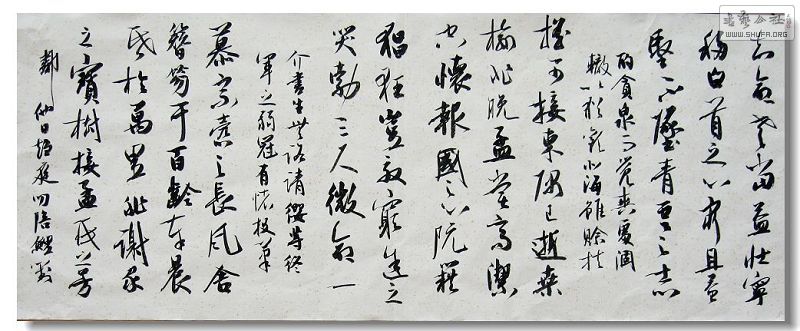 知命老當益壯寧
移白首之心窮且益
堅不墜青雲之志
酌貪泉而覺爽處涸
轍以猶歡北海雖賒扶
搖可接東隅已逝桑
榆非晚孟嘗高潔
空懷報國之心阮籍
猖狂豈效窮途之
哭勃三尺微命一
介書生無路請纓等終
軍之弱冠有懷投筆
慕宗愨之長風舍
簪笏于百齡奉晨
昏於萬里非謝家
之寶樹接孟氏之芳
鄰他日趨庭叨陪鯉對
WWW.SHUFA.ORG